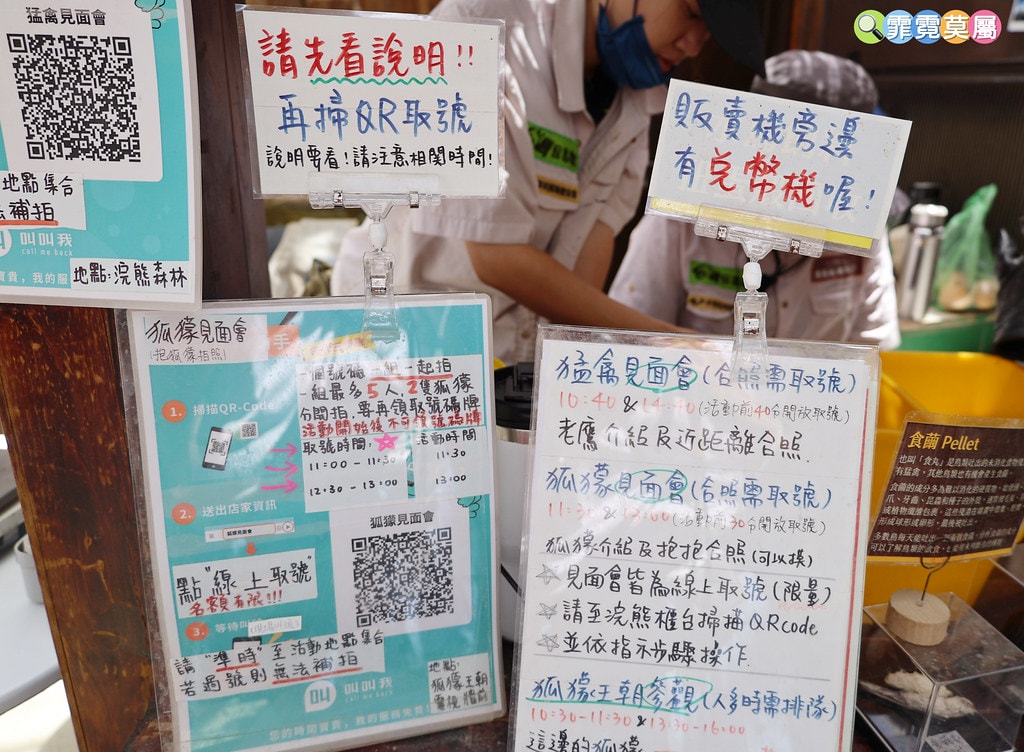 猛禽見面會
地點集合
無法補拍
叫叫我
call me back
地點:浣熊森林
請先看說明!!
再掃QR取號
說明要看!請注意相關時間!
販賣機旁邊
有兌幣機喔!
霏霓莫屬
狐獴見面會
(抱狐獴拍照)
一個號碼一組一起拍
一組最多5人,2隻狐獴
分開拍,要再領取號碼牌
活動開始後不可領號碼牌
取號時間
活動時間
11:00 - 11:30
11:30
12:30 - 13:00
13:00
1. 掃描QR-Code
2. 送出店家資訊
狐獴見面會
點"線上取號"
名額有限!!!
3. 等待叫
狐獴見面會
請"準時"至活動地點集合
若過號則無法補拍
叫叫我
call me back
您的時間寶貴,我的服務免費
地點:
狐獴王朝
電視牆前
猛禽見面會(合照需取號)
10:40 & 14:40 (活動前40分開放取號)
老鷹介紹及近距離合照.
狐獴見面會(合照需取號)
11:30 & 13:00 (活動前30分開放取號)
狐獴介紹及抱抱合照(可以摸)
☆見面會皆為線上取號(限量)
☆請至浣熊櫃台掃描QRcode
☆並依指示步驟操作.
狐獴王朝參觀(人多時需排隊)
10:30-11:30 & 13:30-16:00
這邊的狐獴
食繭 Pellet